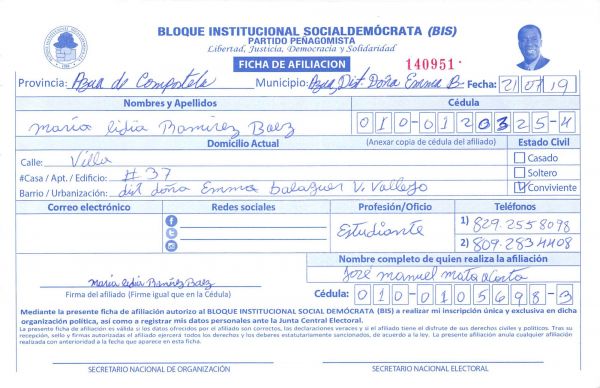 BLOQUE INSTITUCIONAL SOCIALDEMÓCRATA (BIS)
PARTIDO PEÑAGOMISTA
Libertad, Justicia, Democracia y Solidaridad
FICHA DE AFILIACION 140951
Provincia: Azua de Compostela Municipio: Azua, Dist. Doña Emma B. Fecha: 21/07/19
Nombres y Apellidos Cédula
María Lidia Ramirez Baez 010-0120325-4
Domicilio Actual (Anexar copia de cédula del afiliado) Estado Civil
Calle: Villa
Casado
#Casa / Apt. / Edificio: # 37
Soltero
Barrio / Urbanización: dist doña Emma balaguer V. Vallejo
Conviviente
Correo electrónico Redes sociales Profesión/Oficio Teléfonos
Estudiante
1) 829.2558098
2) 809.2834408
Nombre completo de quien realiza la afiliación
José manuel Mata Acosta
María Lidia Ramírez Baez
Firma del afiliado (Firme igual que en la Cédula)
Cédula: 010-0105698-3
Mediante la presente ficha de afiliación autorizo al BLOQUE INSTITUCIONAL SOCIAL DEMÓCRATA (BIS) a realizar mi inscripción única y exclusiva en dicha
organización política, así como a registrar mis datos personales ante la Junta Central Electoral.
La presente ficha de afiliación es válida si los datos ofrecidos por el afiliado son correctos, las declaraciones veraces y si el afiliado tiene el disfrute de sus derechos civiles y políticos. Tras su
recepción, sello y firmas autorizadas el afiliado ejercerá todos los derechos y los deberes estatutariamente sancionados, de acuerdo a la ley. La presente afiliación anula cualquier afiliación
realizada con anterioridad a la fecha que aparece en esta ficha.
SECRETARIO NACIONAL DE ORGANIZACIÓN SECRETARIO NACIONAL ELECTORAL